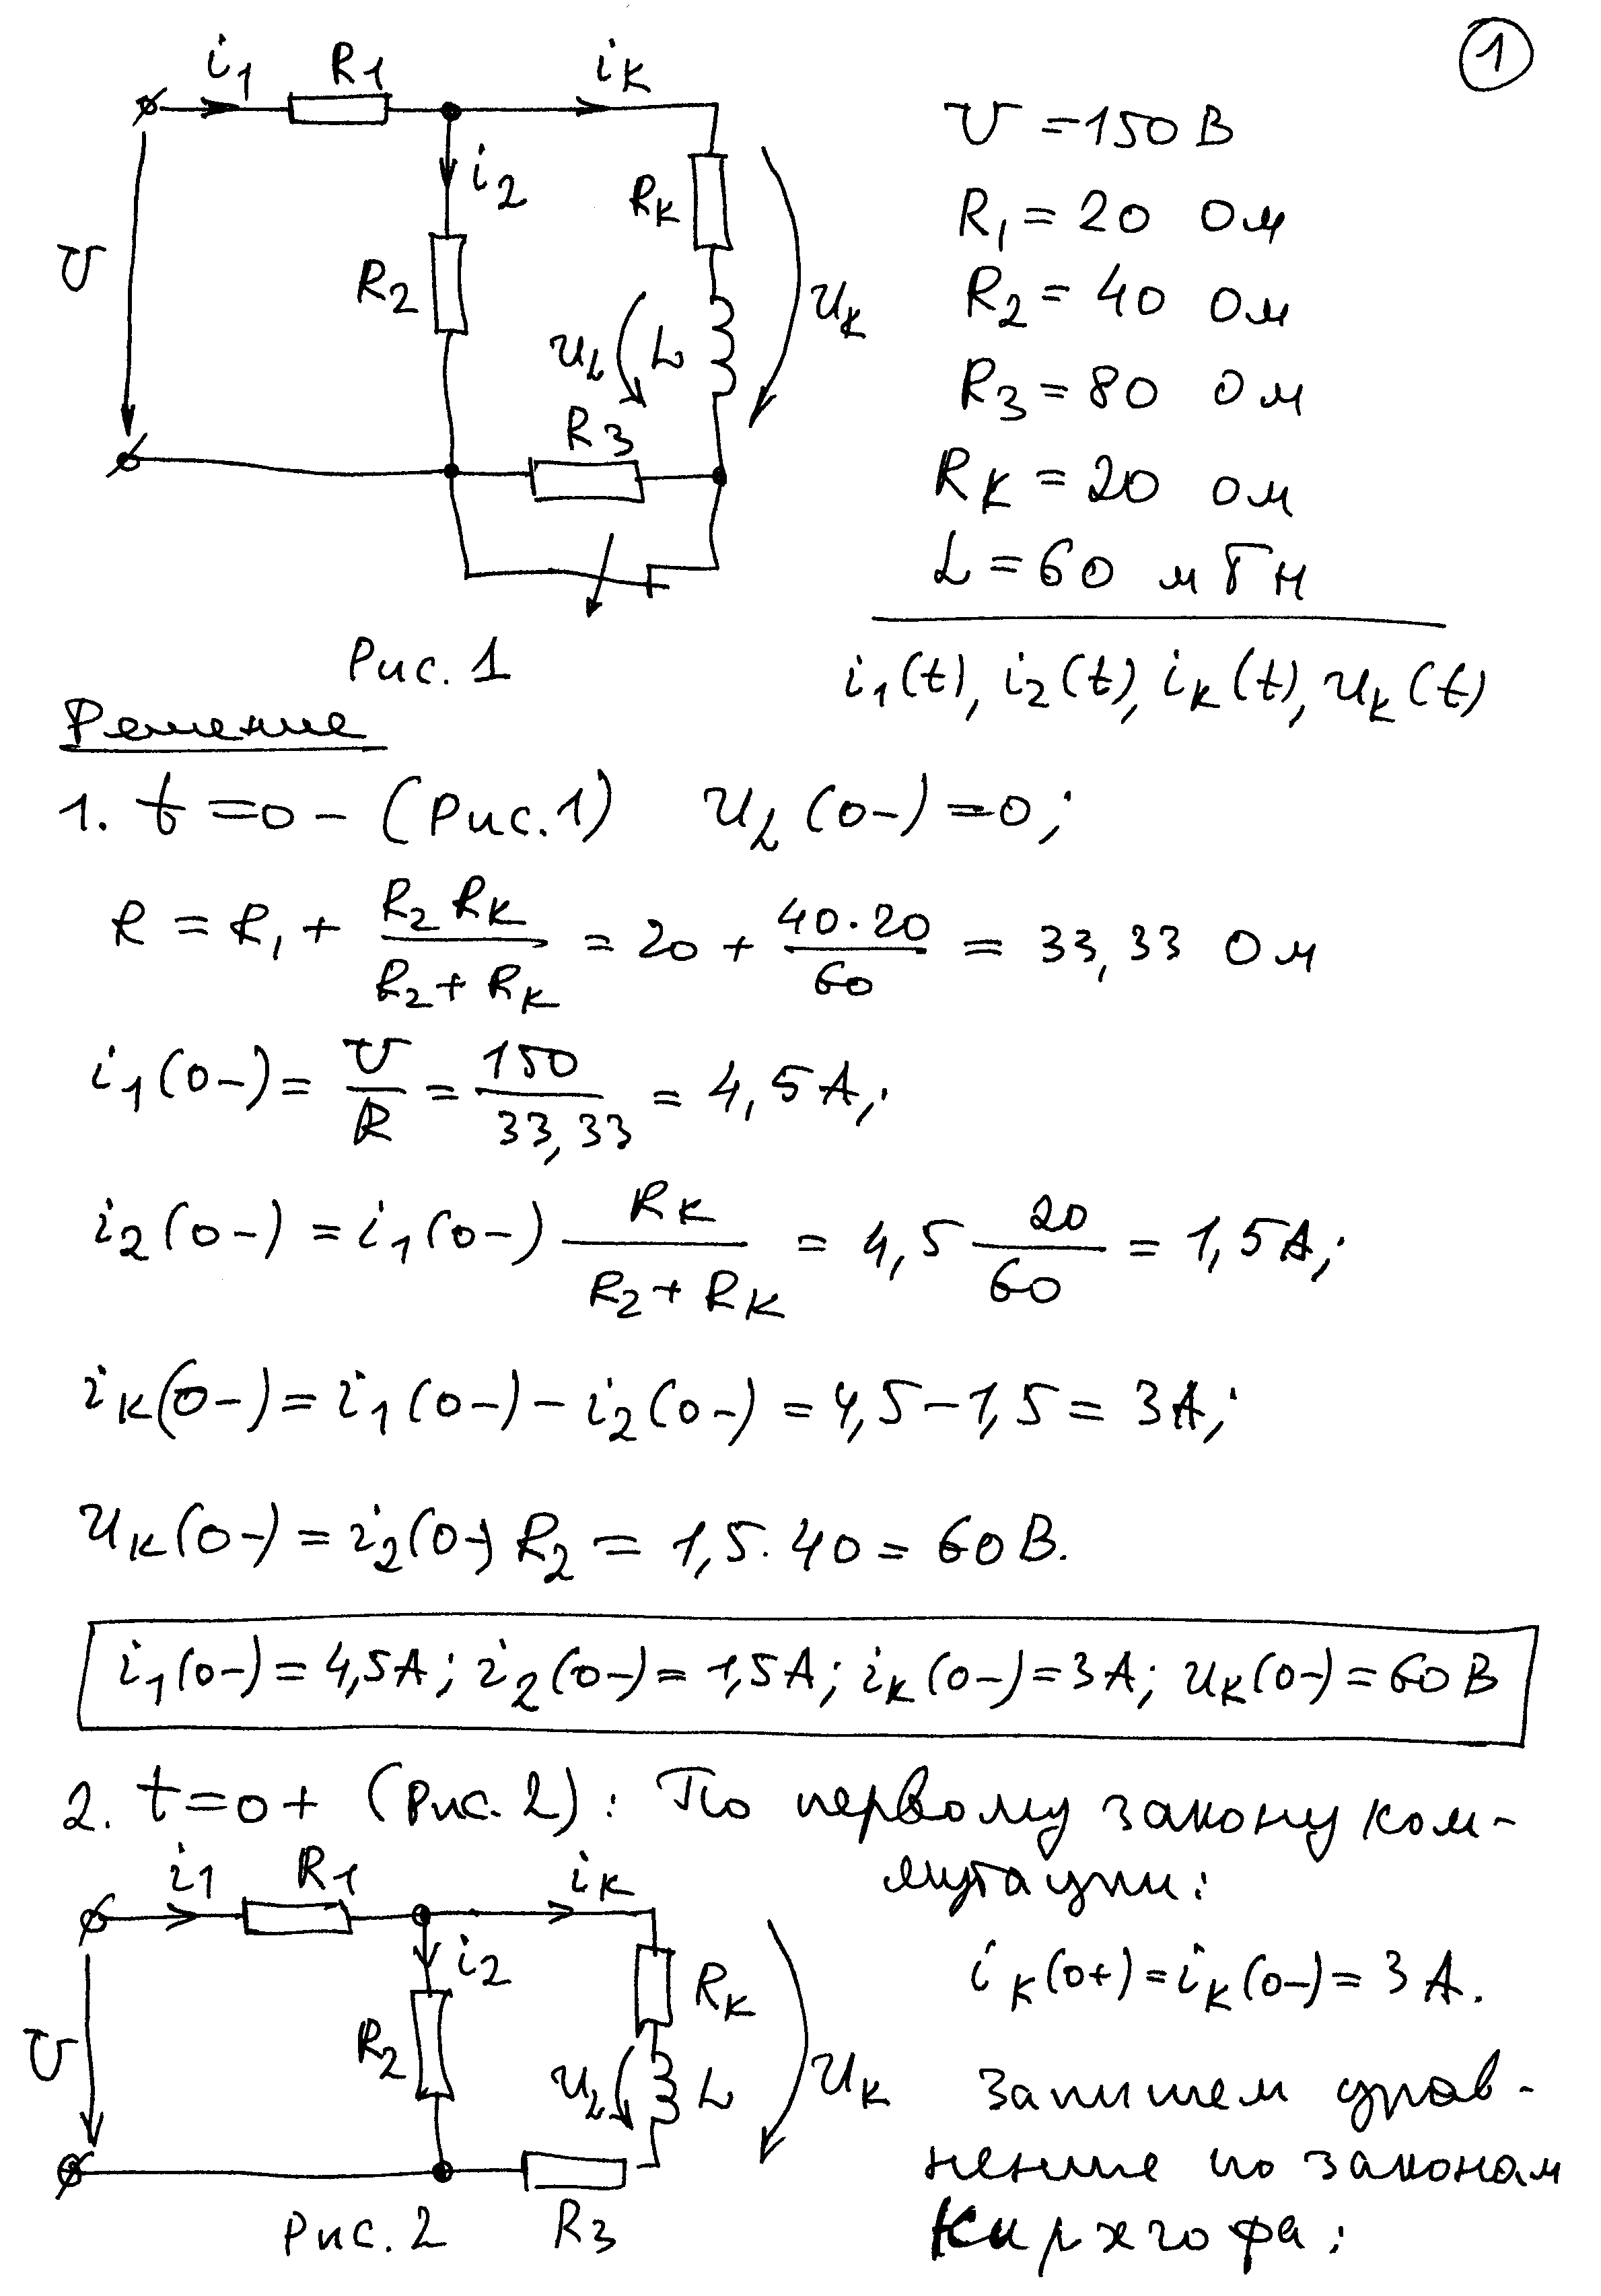 1
i1 R1 iк
U i2 R2 Rк uL L uк R3
U = 150 В
R1 = 20 Ом
R2 = 40 Ом
R3 = 80 Ом
Rк = 20 Ом
L = 60 мГн
Рис. 1
i1(t), i2(t), iк(t), uк(t)
Решение
1. t = 0 - (Рис. 1) uL(0-) = 0;
R = R1 + R2 Rк / (R2 + Rк) = 20 + 40·20 / 60 = 33,33 Ом
i1(0-) = U / R = 150 / 33,33 = 4,5 А;
i2(0-) = i1(0-) Rк / (R2 + Rк) = 4,5 20 / 60 = 1,5 А;
iк(0-) = i1(0-) - i2(0-) = 4,5 - 1,5 = 3 А;
uк(0-) = i2(0-) R2 = 1,5·40 = 60 В.
i1(0-) = 4,5 А; i2(0-) = 1,5 А; iк(0-) = 3 А; uк(0-) = 60 В
2. t = 0+ (Рис. 2): По первому закону ком-
мутации:
i1 R1 iк
U i2 R2 Rк uL L uк R3
iк(0+) = iк(0-) = 3 А.
Запишем урав-
нение по законам
Кирхгофа:
Рис. 2